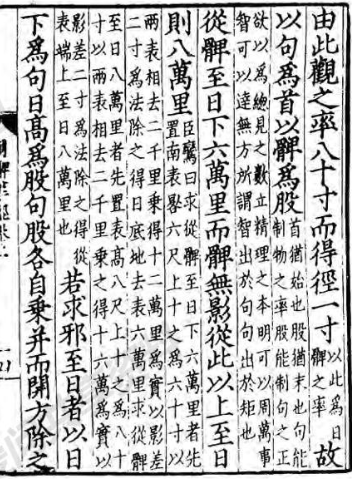 由此觀之率八十寸而得徑一寸以此爲日
髀之率故
以句爲首以髀爲股首猶始也股猶末也句能
制物之率股能制句之正
欲以爲總見之數立精理之本明可以周萬事
智可以達無方所謂智出於句句出於矩也
從髀至日下六萬里而髀無影從此以上至日
則八萬里臣鸞曰求從髀至日下六萬里者
置南表晷六尺上十之爲六十寸以
兩表相去二千里乘得十二萬里爲實以影差
二寸爲法除之得日底地去表六萬里求從髀
至日八萬里者先置表高八尺上十之爲八十
寸以兩表相去二千里乘之得十六萬爲實以
影差二寸爲法除之得從
表端上至日八萬里也若求邪至日者以日
下爲句日高爲股句股各自乘并而開方除之